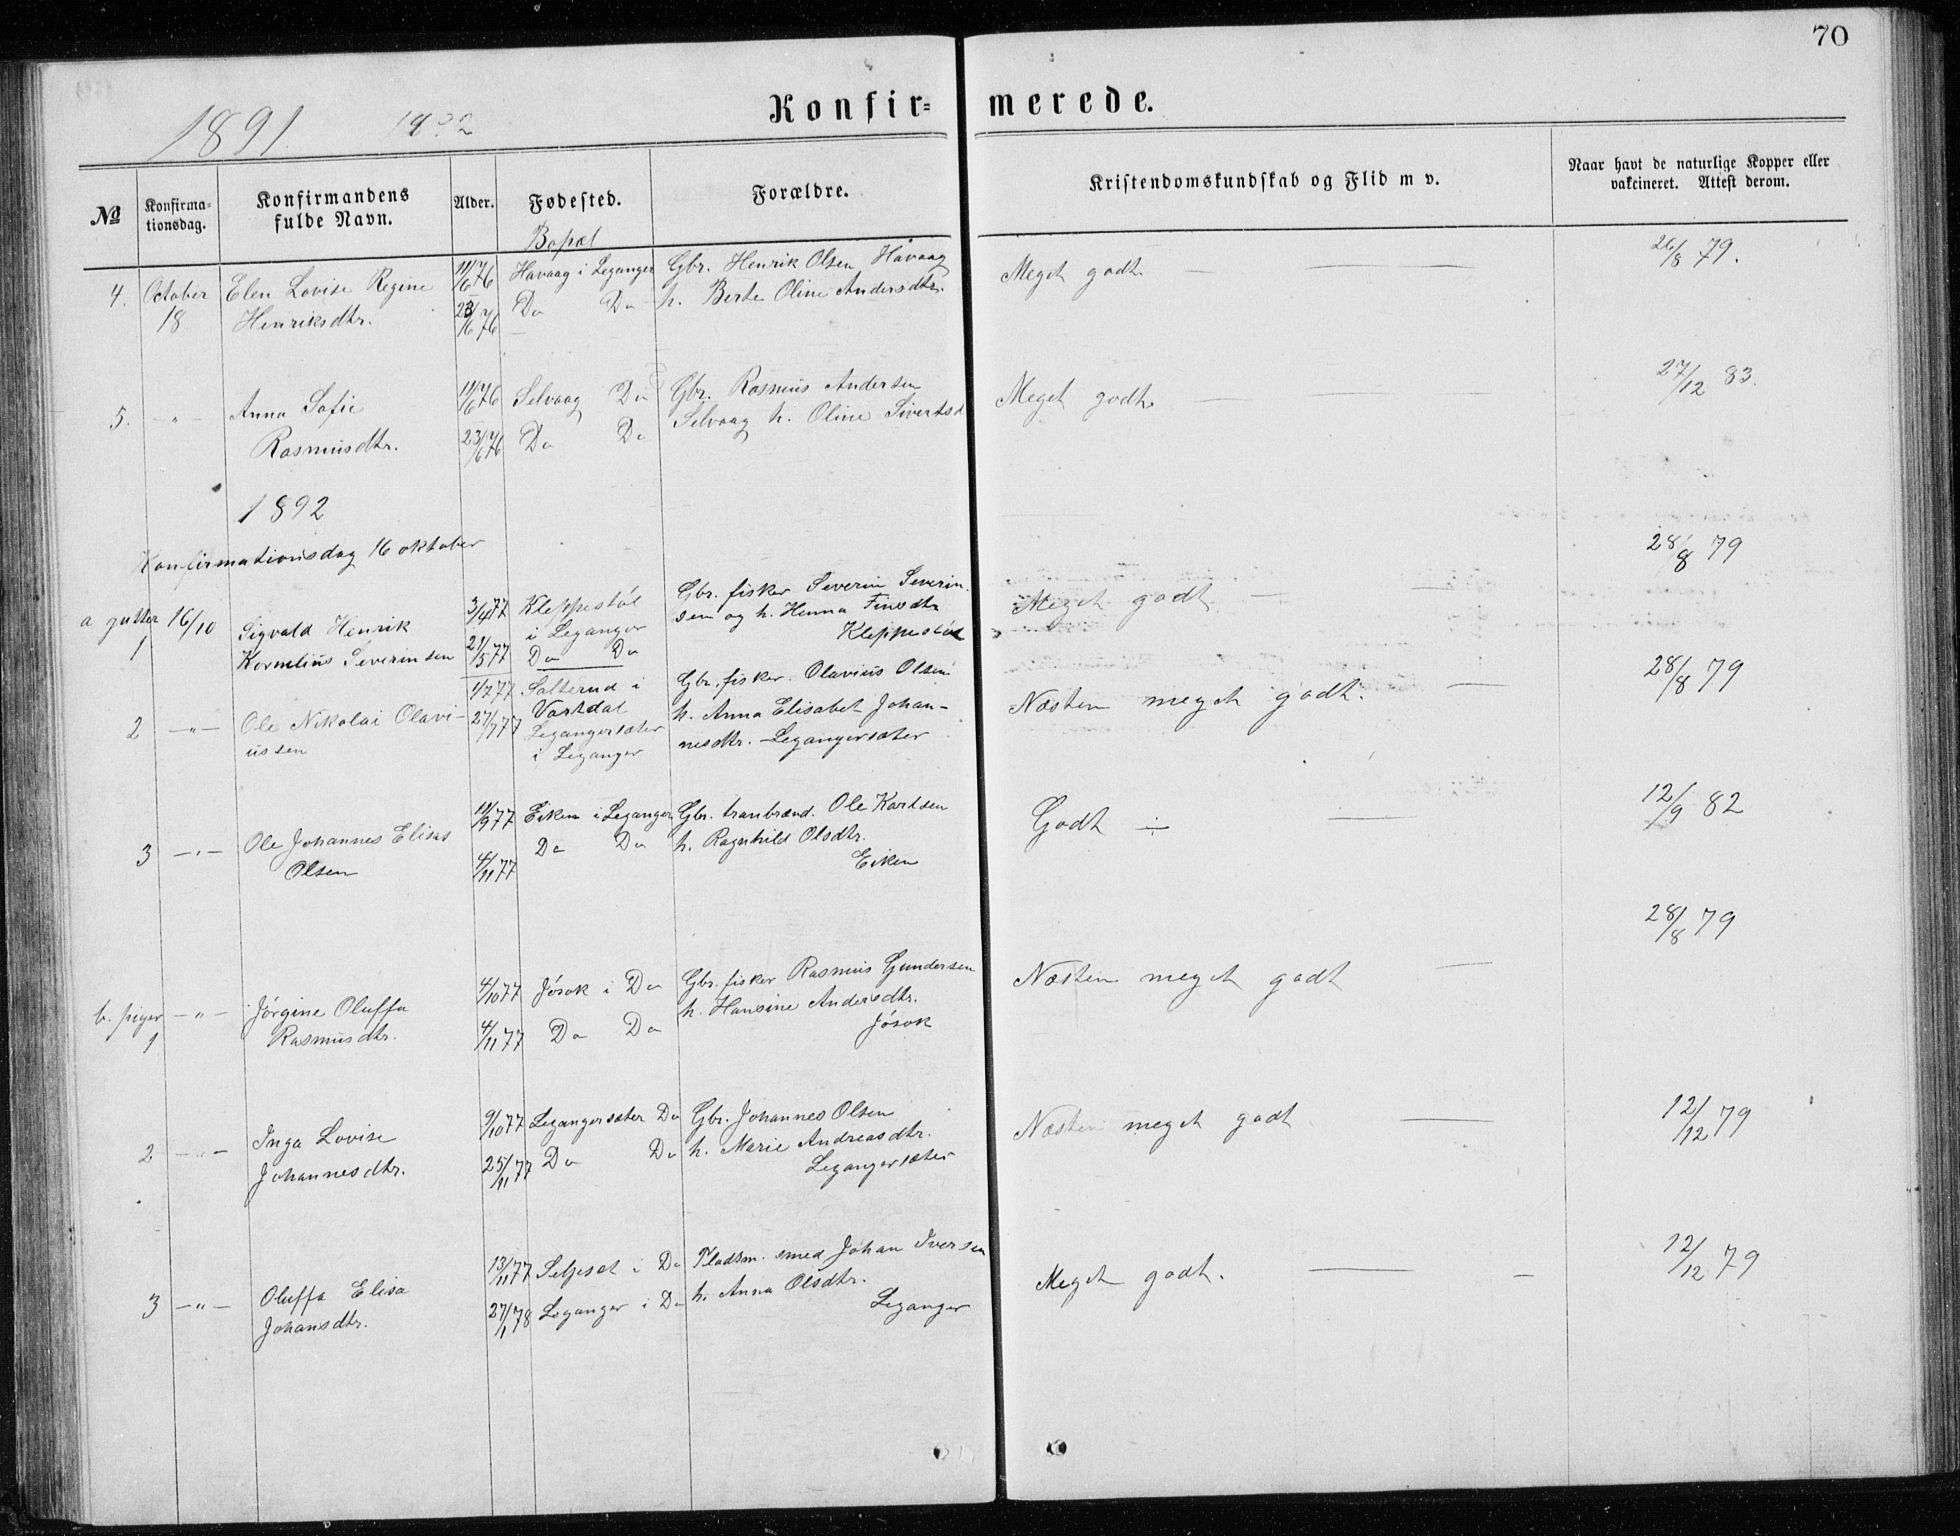 70
1891 1892
Konfir= merede.
№
Konfirma=
tionsdag.
Konfirmandens
fulde Navn.
Alder.
Fødested.
Bopæl
Forældre.
Kristendomskundskab og Flid m v.
Naar havt de naturlige Kopper eller
vakcineret. Attest derom.
4. October 18
Elen Lovise Regine
Henriksdtr.
11/6 76
23/6 76
Havaag i Leganger
Do Do
Gbr. Henrik Olsen Håvaag
h. Berte Oline Andersdtr.
Meget godt
26/8 79.
5. - " -
Anna Sofie
Rasmusdtr.
11/6 76
23/6 76
Selvaag Do
Do Do
Gbr. Rasmus Andersen
Selvaag h. Oline Sivertsd
Meget godt
27/12 83.
1892
Konfirmationsdag 16 oktober
a gutter 1
16/10
Sigvald Henrik
Kornelius Severinsen
3/4 77
21/5 77
Kleppestøl
i Leganger
Do Do
Gbr. fisker Severin Severin
sen og h. Henna Finsdtr
Kleppestøl
Meget godt
28/8 79
2 - " -
Ole Nikolai Olavi-
ussen
1/2 77
27/7 77
Salterud i
Vartdal
Legangersæter
i Leganger
Gbr. fisker. Olavius Olsen
h. Anna Elisabet Johan-
nesdtr. Legangersæter
Næsten meget godt.
28/8 79
3 - " -
Ole Johannes Elias
Olsen
14/9 77
4/11 77
Eiken i Leganger
Do Do
Gbr. tranbrænd. Ole Karlsen
h. Ragnhild Olsdtr.
Eiken
Godt ÷
12/9 82
b. piger 1
- " -
Jørgine Oluffa
Rasmusdtr.
4/10 77
4/11 77
Jøsok i Do
Do Do
Gbr. fisker Rasmus Gundersen
h. Hansine Andersdtr.
Jøsok
Næsten meget godt
28/8 79
2 - " -
Inga Lovise
Johannesdtr.
9/10 77
25/11 77
Legangersæter Do
Do Do
Gbr. Johannes Olsen
h. Marie Andreasdtr.
Legangersæter
Næsten meget godt
12/12 79
3 - " -
Oluffa Elisa
Johansdtr.
13/11 77
27/1 78
Seljeset i Do
Leganger i Do
Pladsm. smed Johan Iversen
h. Anna Olsdtr.
Leganger
Meget godt.
12/12 79